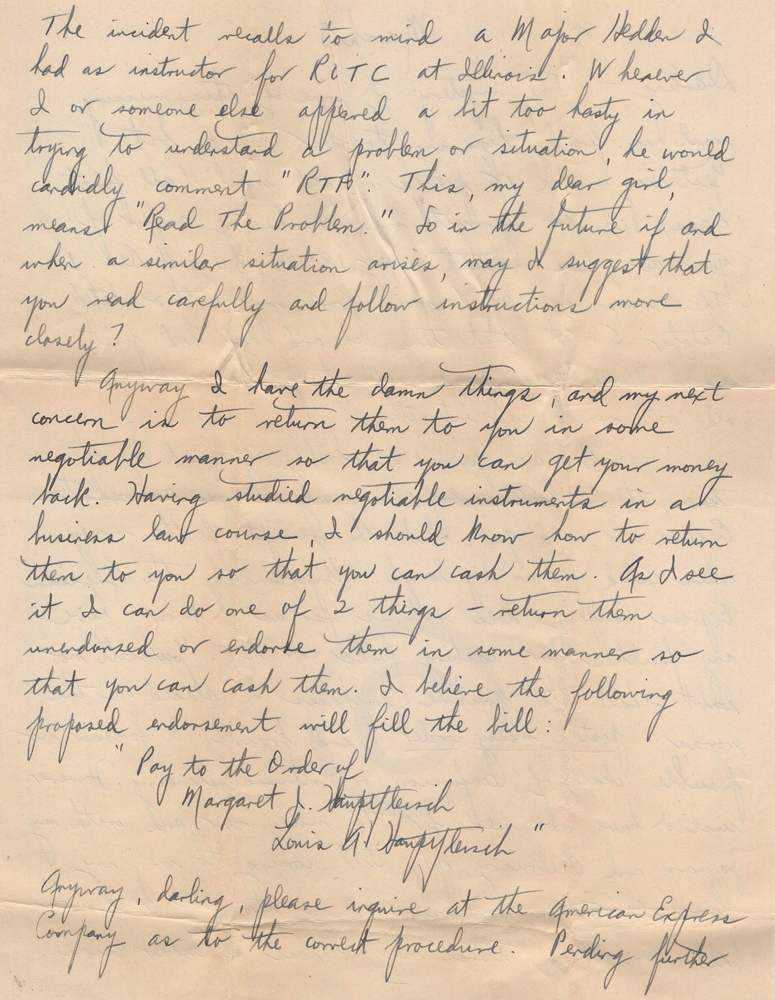 The incident recalls to mind a Major Hedden I
had as instructor for ROTC at Illinois. Whenever
I or someone else appeared a bit too hasty in
trying to understand a problem or situation, he would
candidly comment "RTP". This, my dear girl,
means "Read The Problem." So in the future if and
when a similar situation arises, may I suggest that
you read carefully and follow instructions more
closely?
Anyway I have the damn things, and my next
concern is to return them to you in some
negotiable manner so that you can get your money
back. Having studied negotiable instruments in a
business law course, I should know how to return
them to you so that you can cash them. As I see
it I can do one of 2 things - return them
unendorsed or endorse them in some manner so
that you can cash them. I believe the following
proposed endorsement will fill the bill:
"Pay to the Order of
Margaret J. Hauptfleisch
Louis A. Hauptfleisch"
Anyway, darling, please inquire at the American Express
Company as to the correct procedure. Pending further